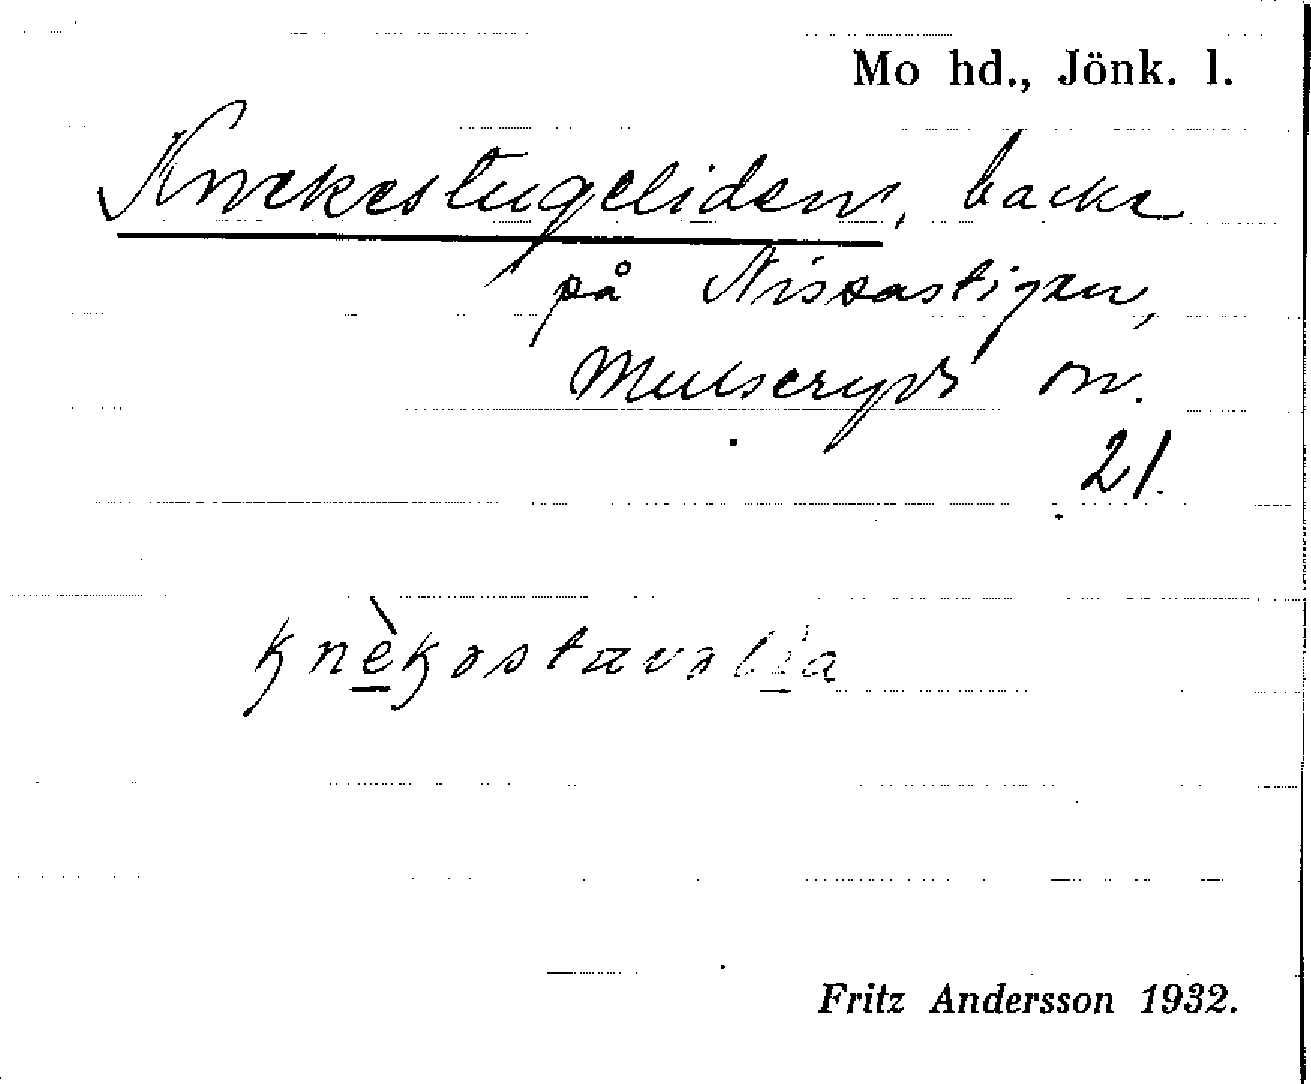 Mo hd., Jönk. l.
Knekestugeliden, backe
på Nissastigen,
Mulseryds sn.
21.
Fritz Andersson 1932.